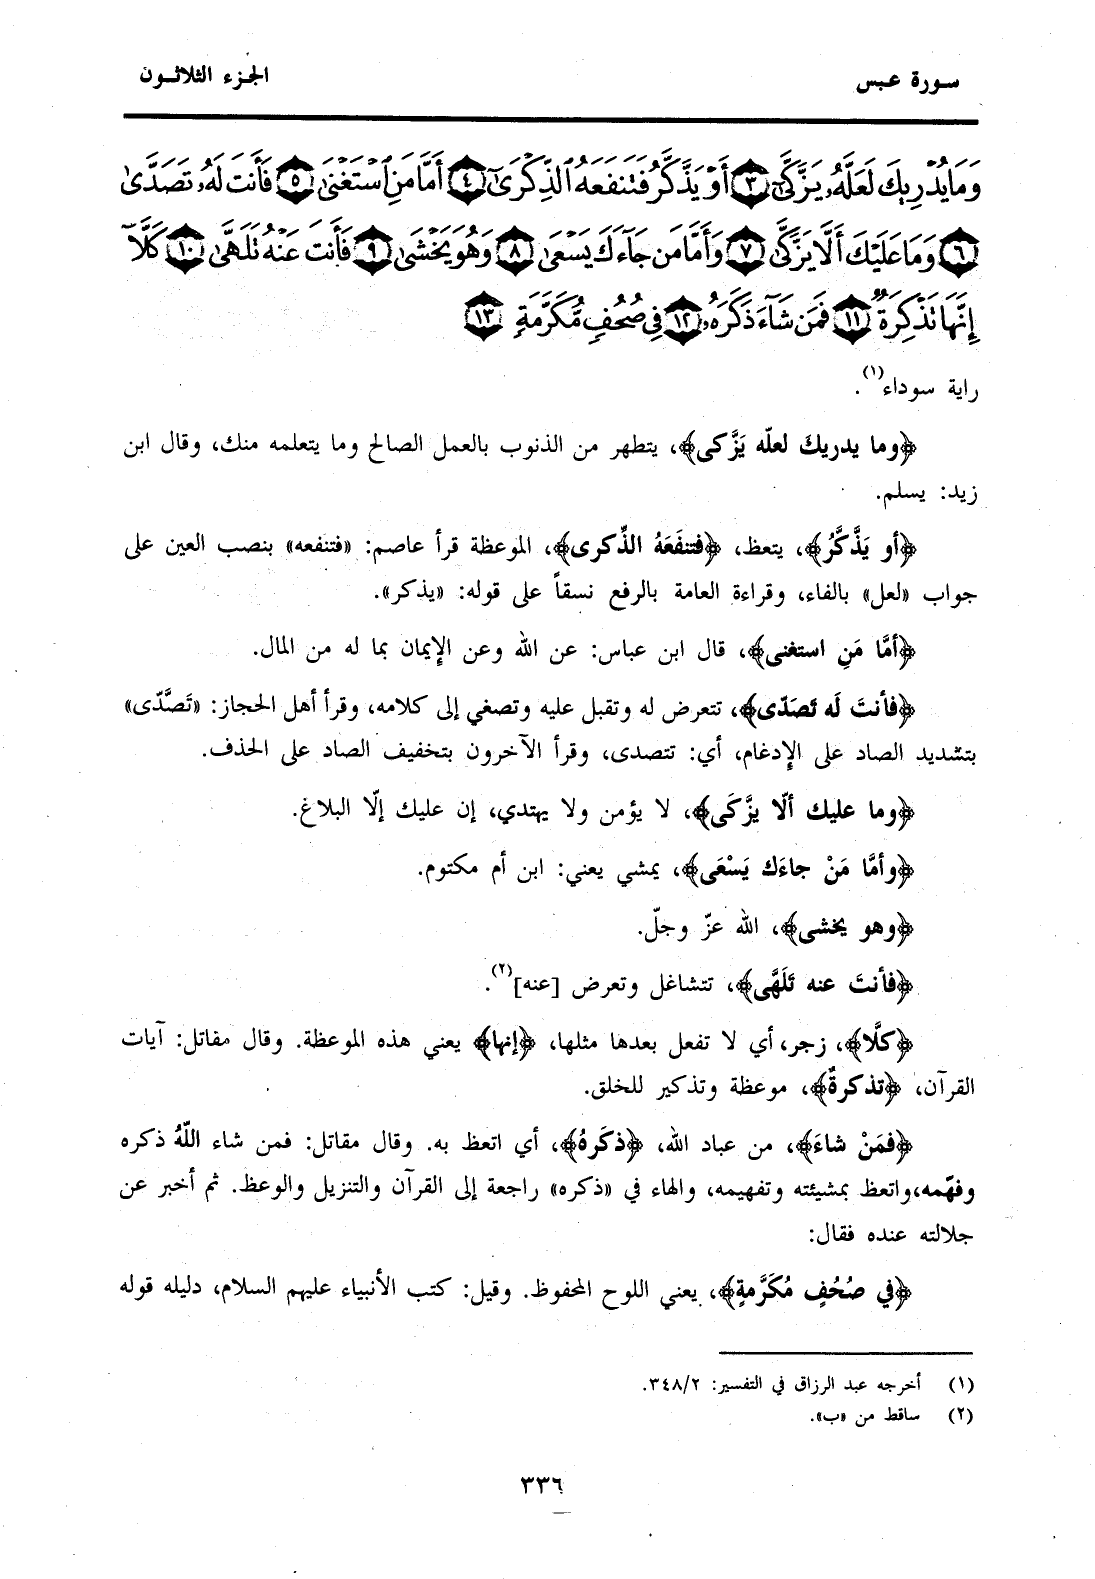 سورة عبس
الجزء الثلاثون
وَمَا يُدْرِيكَ لَعَلَّهُۥ يَزَّكَّىٰٓ ﴿٣﴾ أَوْ يَذَّكَّرُ فَتَنفَعَهُ ٱلذِّكْرَىٰٓ ﴿٤﴾ أَمَّا مَنِ ٱسْتَغْنَىٰ ﴿٥﴾ فَأَنتَ لَهُۥ تَصَدَّىٰ
﴿٦﴾ وَمَا عَلَيْكَ أَلَّا يَزَّكَّىٰ ﴿٧﴾ وَأَمَّا مَن جَآءَكَ يَسْعَىٰ ﴿٨﴾ وَهُوَ يَخْشَىٰ ﴿٩﴾ فَأَنتَ عَنْهُ تَلَهَّىٰ ﴿١٠﴾ كَلَّآ
إِنَّهَا تَذْكِرَةٌ ﴿١١﴾ فَمَن شَآءَ ذَكَرَهُۥ ﴿١٢﴾ فِى صُحُفٍ مُّكَرَّمَةٍ ﴿١٣﴾
راية سوداء(١).
﴿وما يدريك لعلّه يَزَّكى﴾، يتطهر من الذنوب بالعمل الصالح وما يتعلمه منك، وقال ابن
زيد: يسلم.
﴿أو يَذَّكَّرُ﴾، يتعظ، ﴿فتنفَعَهُ الذِّكرى﴾، الموعظة قرأ عاصم: «فتنفعه» بنصب العين على
جواب «لعل» بالفاء، وقراءة العامة بالرفع نسقاً على قوله: «يذكر».
﴿أمَّا مَنِ استغنى﴾، قال ابن عباس: عن الله وعن الإيمان بما له من المال.
﴿فأنتَ لَه تَصَدّى﴾، تتعرض له وتقبل عليه وتصغي إلى كلامه، وقرأ أهل الحجاز: «تَصَّدّى»
بتشديد الصاد على الإدغام، أي: تتصدى، وقرأ الآخرون بتخفيف الصاد على الحذف.
﴿وما عليك ألّا يزَّكَى﴾، لا يؤمن ولا يهتدي، إن عليك إلّا البلاغ.
﴿وأمَّا مَنْ جاءَك يَسْعَى﴾، يمشي يعني: ابن أم مكتوم.
﴿وهو يخشى﴾، الله عزّ وجلّ.
﴿فأنتَ عنه تَلَهَّى﴾، تتشاغل وتعرض [عنه](٢).
﴿كلَّا﴾، زجر، أي لا تفعل بعدها مثلها، ﴿إنها﴾ يعني هذه الموعظة. وقال مقاتل: آيات
القرآن، ﴿تذكرةٌ﴾، موعظة وتذكير للخلق.
﴿فمَنْ شاءَ﴾، من عباد الله، ﴿ذكَرهُ﴾، أي اتعظ به. وقال مقاتل: فمن شاء اللّهُ ذكره
وفهّمه، واتعظ بمشيئته وتفهيمه، والهاء في «ذكره» راجعة إلى القرآن والتنزيل والوعظ. ثم أخبر عن
جلالته عنده فقال:
﴿في صُحُفٍ مُكَرَّمةٍ﴾، يعني اللوح المحفوظ. وقيل: كتب الأنبياء عليهم السلام، دليله قوله
(١) أخرجه عبد الرزاق في التفسير: ٣٤٨/٢.
(٢) ساقط من «ب».
٣٣٦